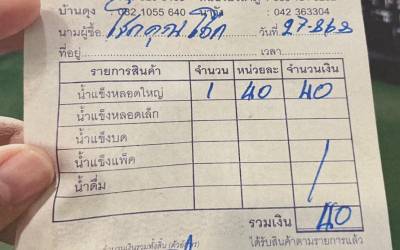 บ้านดุง : 082 1055 640 : 042 363304
นามผู้ซื้อ วันที่ 27-8-68
ที่อยู่ เวลา
รายการสินค้า จำนวน หน่วยละ จำนวนเงิน
น้ำแข็งหลอดใหญ่ 1 40 40
น้ำแข็งหลอดเล็ก
น้ำแข็งบด
น้ำแข็งแพ็ค
น้ำดื่ม
รวมเงิน 40
ได้รับสินค้าตามรายการแล้ว